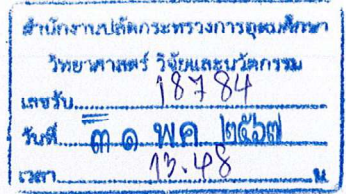 สำนักงานปลัดกระทรวงการอุดมศึกษา
วิทยาศาสตร์ วิจัยและนวัตกรรม
เลขรับ 18784
วันที่ ๓๑ พค ๒๕๖๗
เวลา 13.48 น